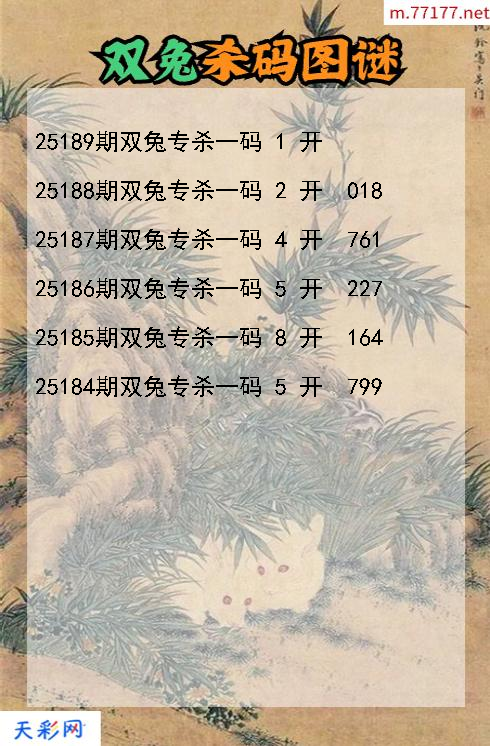 m.77177.net
双兔杀码图谜
25189期双兔专杀一码 1 开
25188期双兔专杀一码 2 开 018
25187期双兔专杀一码 4 开 761
25186期双兔专杀一码 5 开 227
25185期双兔专杀一码 8 开 164
25184期双兔专杀一码 5 开 799
天彩网